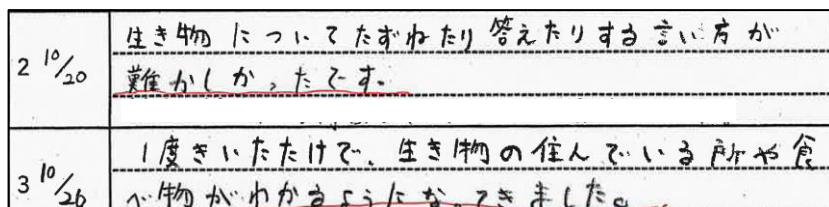 2 10/20
生き物についてたずねたり答えたりする言い方が
難かしかったてす。
3 10/26
1度きいたたけで、生き物の住んでいる所や食
べ物がわかるようになってきました。